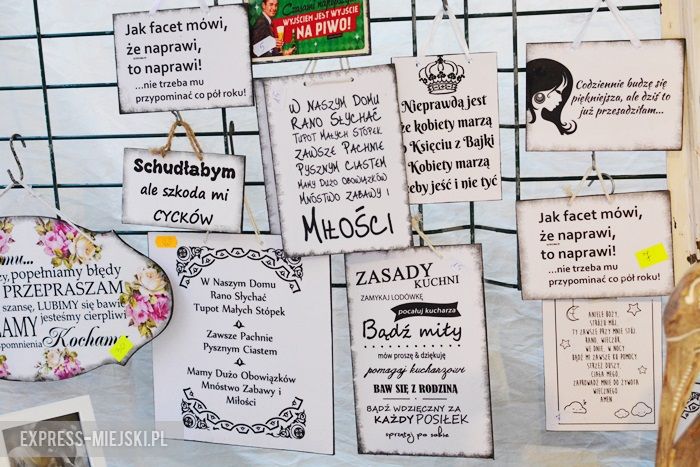 Jak facet mówi,
że naprawi,
to naprawi!
...nie trzeba mu
przypominać co pół roku!
Czasami najlepszym
WYJŚCIEM JEST WYJŚCIE
NA PIWO!
Schudłabym
ale szkoda mi
CYCKÓW
W NASZYM DOMU
RANO SŁYCHAĆ
TUPOT MAŁYCH STÓPEK
ZAWSZE PACHNIE
PYSZNYM CIASTEM
MAMY DUŻO OBOWIĄZKÓW
MNÓSTWO ZABAWY I
MIŁOŚCI
Nieprawdą jest
że kobiety marzą
o Księciu z Bajki
Kobiety marzą
żeby jeść i nie tyć
Codziennie budzę się
piękniejsza, ale dziś to
już przesadziłam...
Jak facet mówi,
że naprawi,
to naprawi!
...nie trzeba mu
przypominać co pół roku!
7
popełniamy błędy
PRZEPRASZAM
szansę, LUBIMY się bawić
jesteśmy cierpliwi
Kocham
W Naszym Domu
Rano Słychać
Tupot Małych Stópek
Zawsze Pachnie
Pysznym Ciastem
Mamy Dużo Obowiązków
Mnóstwo Zabawy i
Miłości
ZASADY
KUCHNI
ZAMYKAJ LODÓWKĘ
pocałuj kucharza
Bądź miły
mów proszę & dziękuję
pomagaj kucharzowi
BAW SIĘ Z RODZINĄ
BĄDŹ WDZIĘCZNY ZA
KAŻDY POSIŁEK
sprzątaj po sobie
ANIELE BOŻY,
STRÓŻU MÓJ,
TY ZAWSZE PRZY MNIE STÓJ.
RANO, WIECZÓR,
WE DNIE, W NOCY
BĄDŹ MI ZAWSZE KU POMOCY
STRZEŻ DUSZY,
CIAŁA MEGO,
ZAPROWADŹ MNIE DO ŻYWOTA
WIECZNEGO.
AMEN
EXPRESS-MIEJSKI.PL